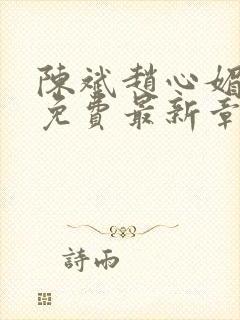 陳斌趙心媚
免費最新章
詩雨